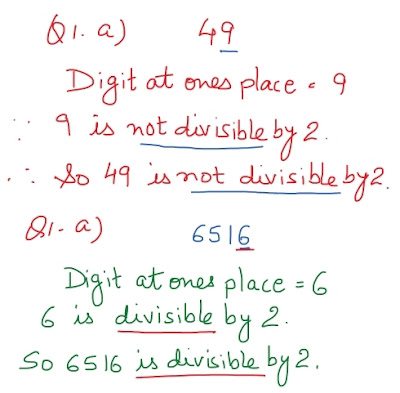 Q1. a) 49
Digit at ones place = 9
∵ 9 is not divisible by 2.
∴ So 49 is not divisible by 2.
Q1- a) 6516
Digit at ones place = 6
6 is divisible by 2.
So 6516 is divisible by 2.